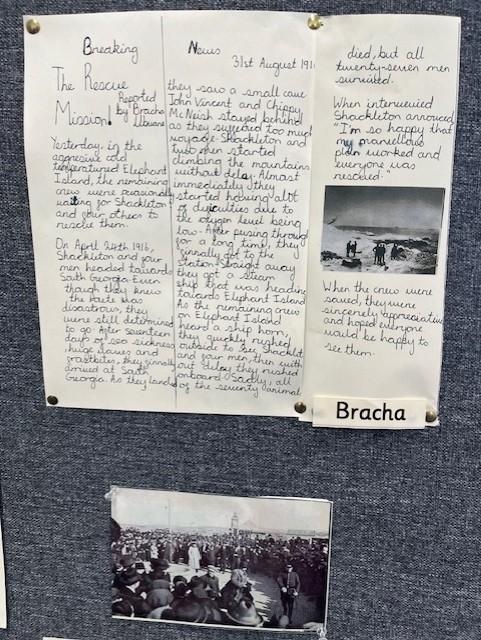 Breaking News
31st August 191
The Rescue
Mission!
Reported
by Bracha
Yesterday, in the
aggresive cold
temperatured Elephant
Island, the remaining
crew were reasonably
waiting for Shackleton
and four others to
rescue them.
On April 24th 1916,
Shackleton and four
men headed towards
South Georgia. Even
though they knew
the route was
disastrous, they
were still determined
to go. After seventeen
days of sea sickness
, huge waves and
frostbites, they finnaly
arrived at South
Georgia. As they landed
they saw a small cave
John Vincent and Chippy
Mc Neish stayed behind
as they suffered too much
voyage. Shackleton and
two men started
climbing the mountains
without delay. Almost
immediately they
started having alot
of difficulties due to
the oxygen level being
low. After pusing through
for a long time, they
finnally got to the
Station. Straight away
they got a steam
ship that was heading
towards Elephant Island
As the remaining crew
on Elephant Island
heard a ship horn,
they quickly rushed
outside to see Shacklet
and four men, then with
out delay they rushed
onboard. Sadly, all
of the seventy animal
died, but all
twenty-seven men
survived.
When interveiwed
Shackleton annouced
"I'm so happy that
my marvellous
plan worked and
everyone was
rescued."
When the crew were
saved, they were
sincerely appreciative
and hoped everyone
would be happy to
see them.
Bracha